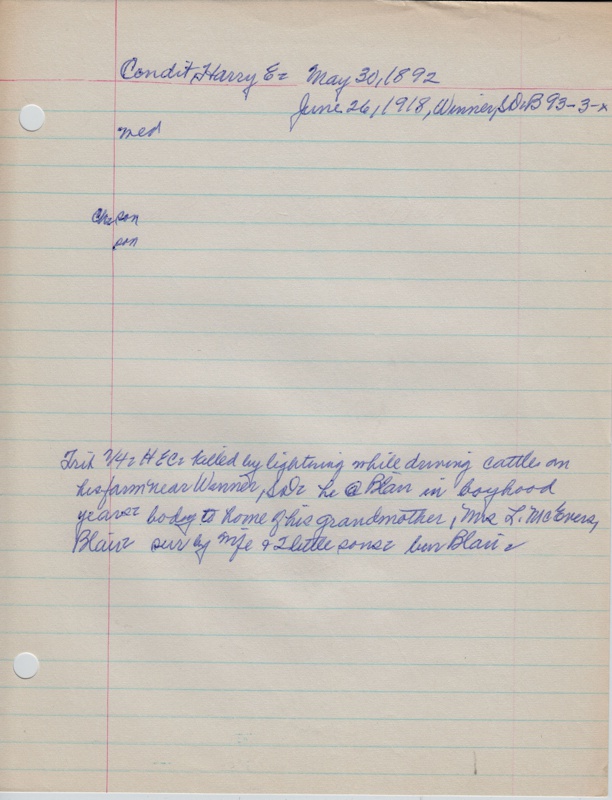 Condit, Harry E= May 30, 1892
June 26, 1918, Winner, SD= B 93-3-x
med
Ch= son
son
Trib 7/4= HEC= killed by lightning while driving cattle on
his farm near Winner, SD= Li @ Blair in boyhood
years= body to home of his grandmother, Mrs L. McEvers,
Blair= sur by wife & 2 little sons= bur Blair=